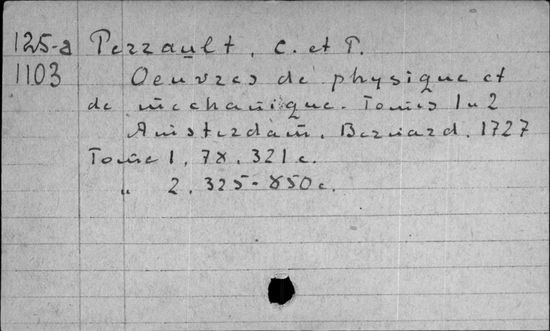 125-a Perrault, C. et P.
1103 Oeuvres de physique et
de mechanique. Tomes 1 u 2
Amsterdam, Bernard, 1727
Tome 1, 78, 321 c.
" 2, 325-850 c.